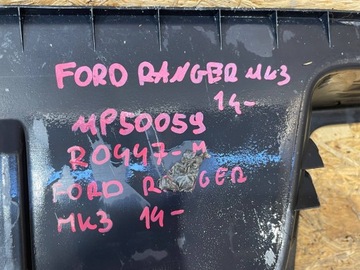 FORD RANGER MK3
14-
MP50059
R0447-M
FORD RANGER
MK3 14-